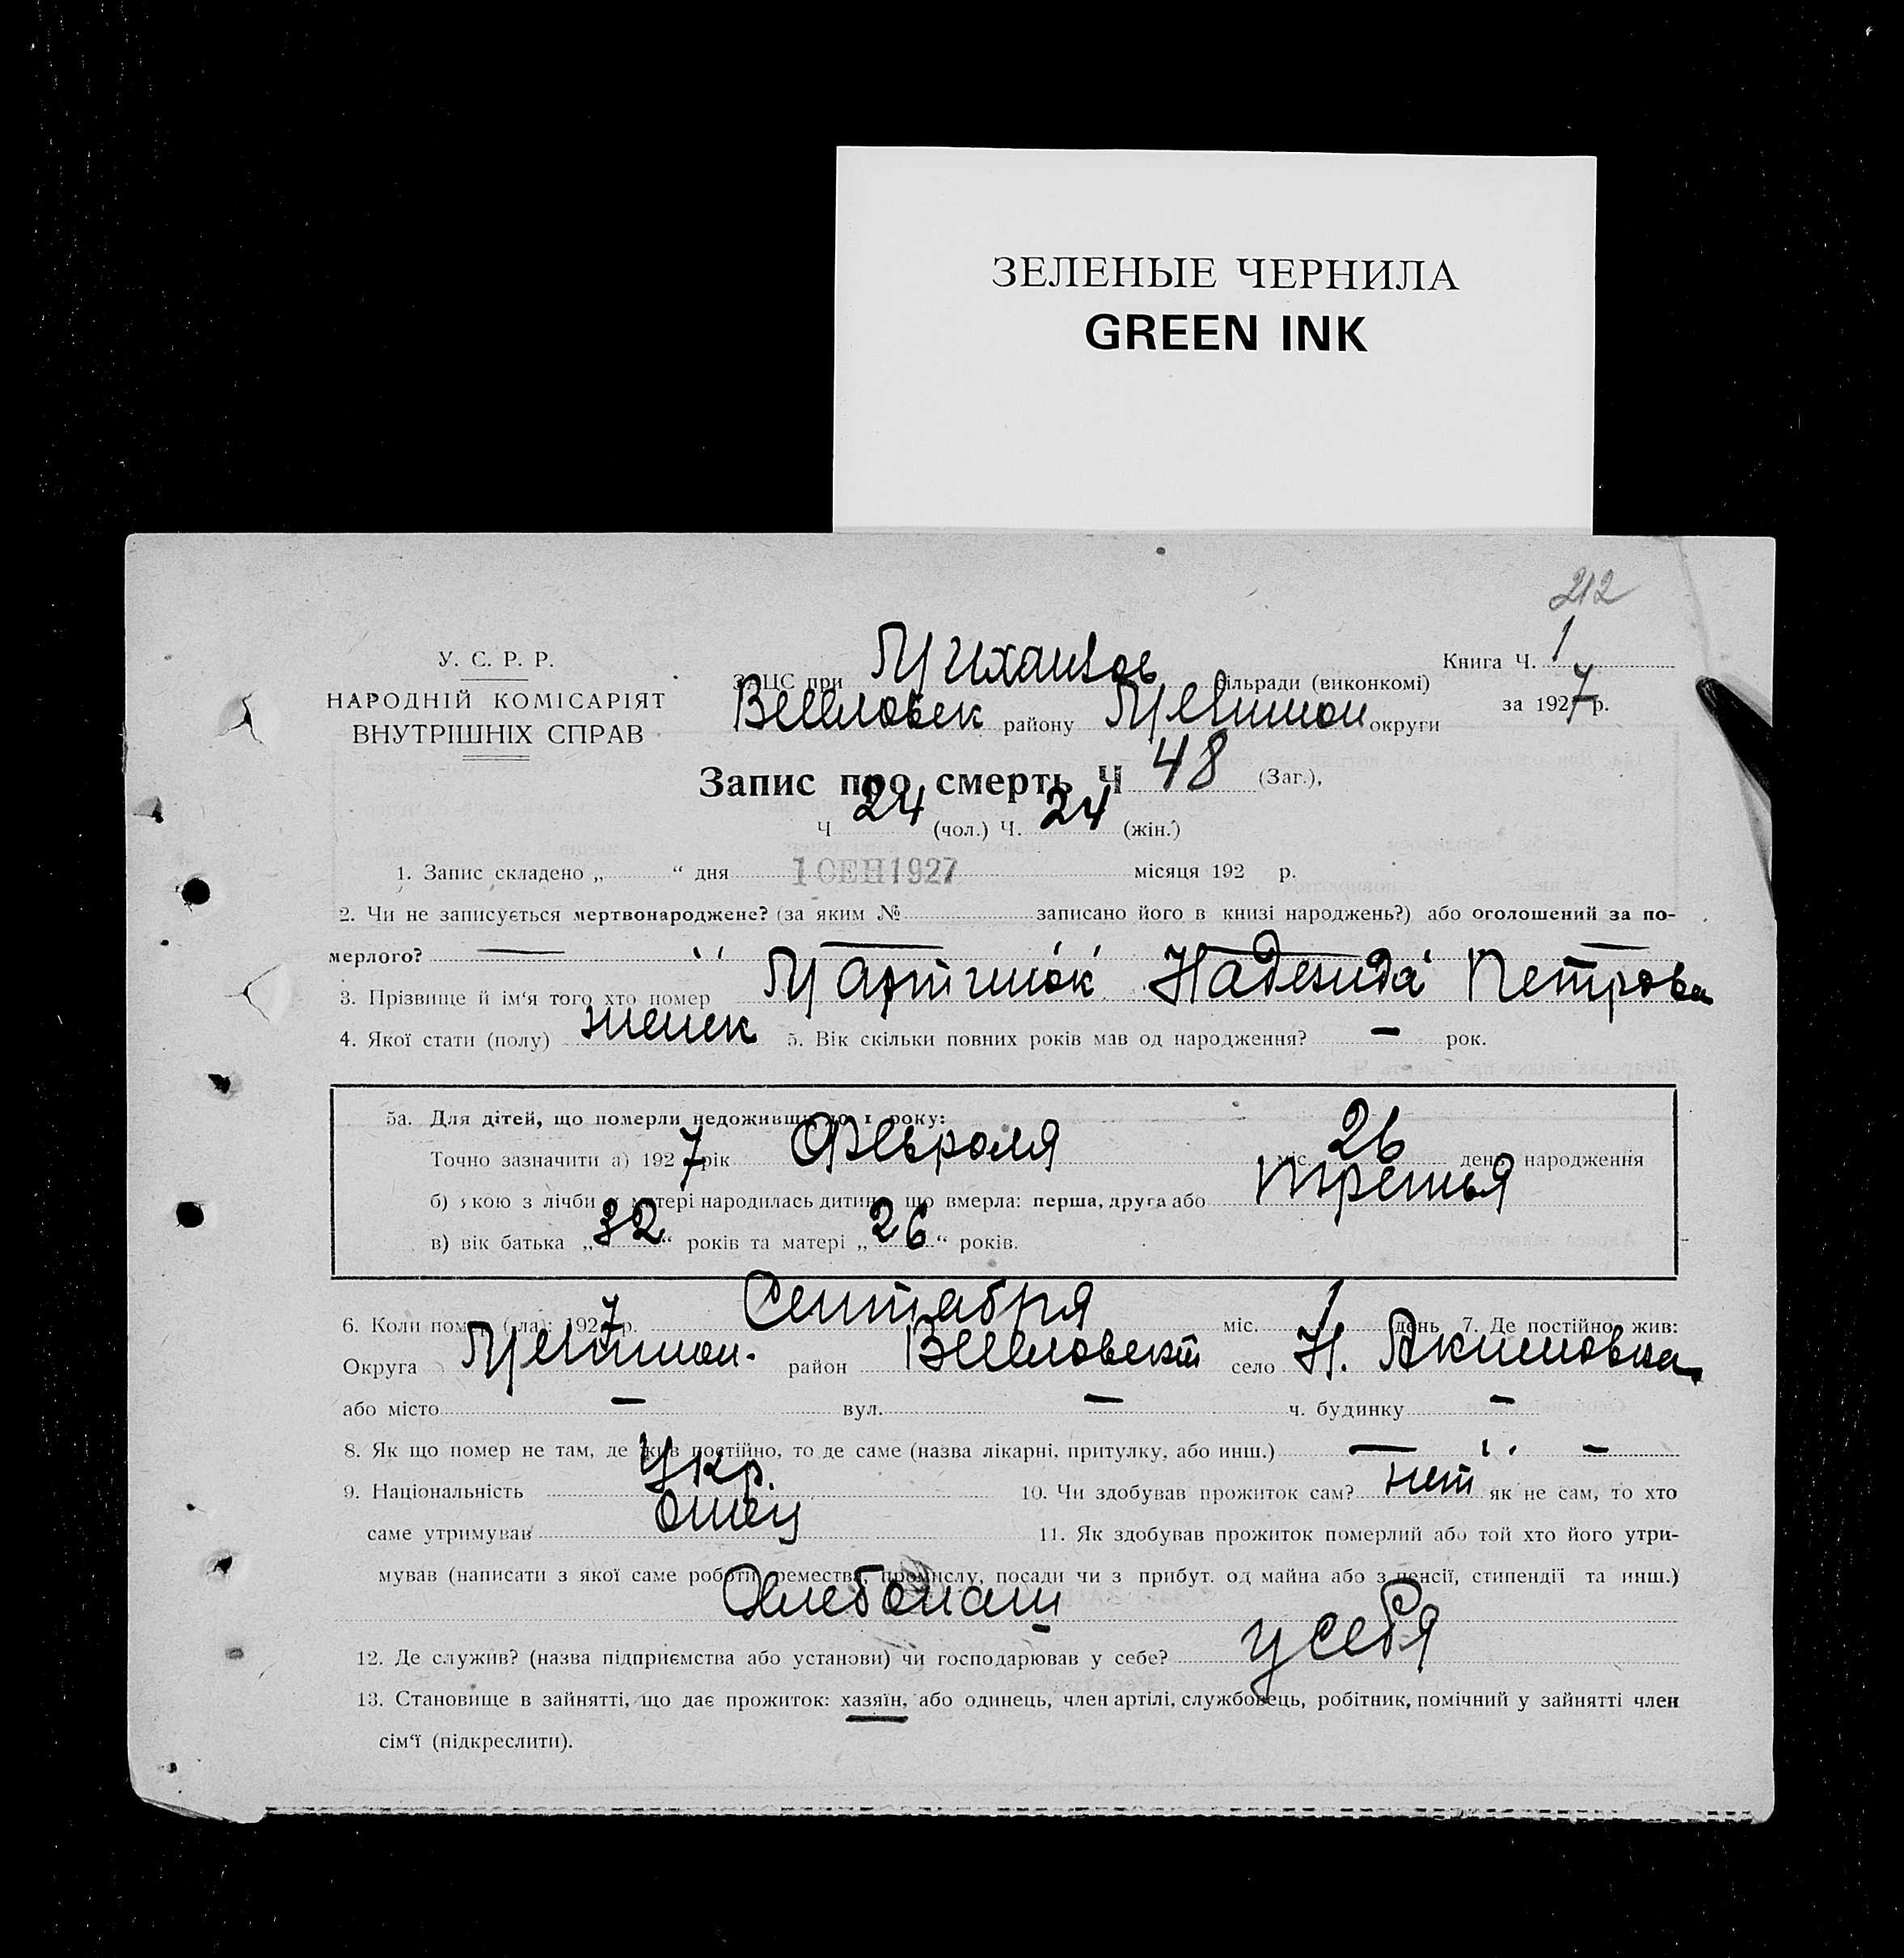 ЗЕЛЕНЫЕ ЧЕРНИЛА
GREEN INK
212
У. С. Р. Р.
НАРОДНІЙ КОМІСАРІЯТ
ВНУТРІШНІХ СПРАВ
Книга Ч. 1
за 1927 р.
ЗАЦС при Михайлов сільради (виконкомі)
Веселовск району Мелитоп округи
Запис про смерть Ч 48 (Заг.),
Ч 24 (чол.) Ч. 24 (жін.)
1. Запис складено „ “ дня 1 СЕН 1927 місяця 192 р.
2. Чи не записується мертвонароджене? (за яким № записано його в книзі народжень?) або оголошений за по-
мерлого? —
3. Прізвище й ім‘я того хто помер Мартинюк Надежда Петрова
4. Якої стати (полу) женск 5. Вік скільки повних років мав од народження? — рок.
5а. Для дітей, що померли недоживши до 1 року:
Точно зазначити а) 1927 рік Февраля міс. 26 день народження
б) якою з лічби у матері народилась дитина, що вмерла: перша, друга або третья
в) вік батька „32“ років та матері „26“ років.
6. Коли помер (ла): 1927 р. Сентября міс. 1 день 7. Де постійно жив:
Округа Мелитоп. район Веселовск село Н. Акимовка
або місто — вул. — ч. будинку —
8. Як що помер не там, де жив постійно, то де саме (назва лікарні, притулку, або инш.) — " —
9. Національність Укр. 10. Чи здобував прожиток сам? нет як не сам, то хто
саме утримував отец 11. Як здобував прожиток померлий або той хто його утри-
мував (написати з якої саме роботи, ремества, промислу, посади чи з прибут. од майна або з пенсії, стипендії та инш.)
Хлебопаш
12. Де служив? (назва підприємства або установи) чи господарював у себе? у себя
13. Становище в зайнятті, що дає прожиток: хазяїн, або одинець, член артілі, службовець, робітник, помічний у зайнятті член
сім‘ї (підкреслити).